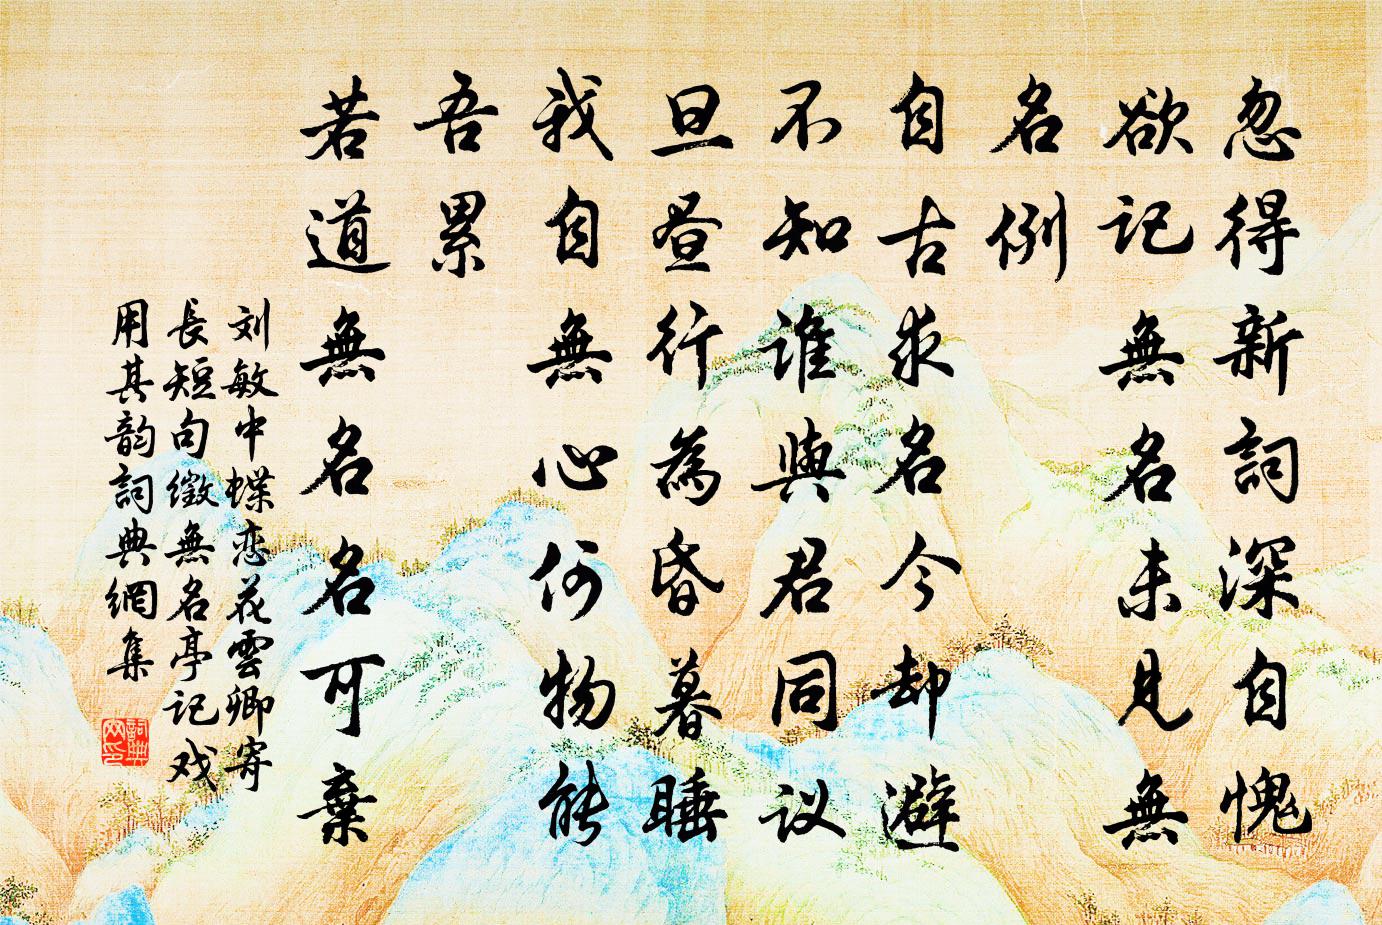 忽得新詞深自愧
欲记無名未見無
名例
自古求名今却避
不知誰與君同议
旦昼行為昏暮睡
我自無心何物能
吾累
若道無名名可棄
刘敏中蝶恋花雲卿寄
長短句徵無名亭记戏
用其韵詞典網集
詞典
网印